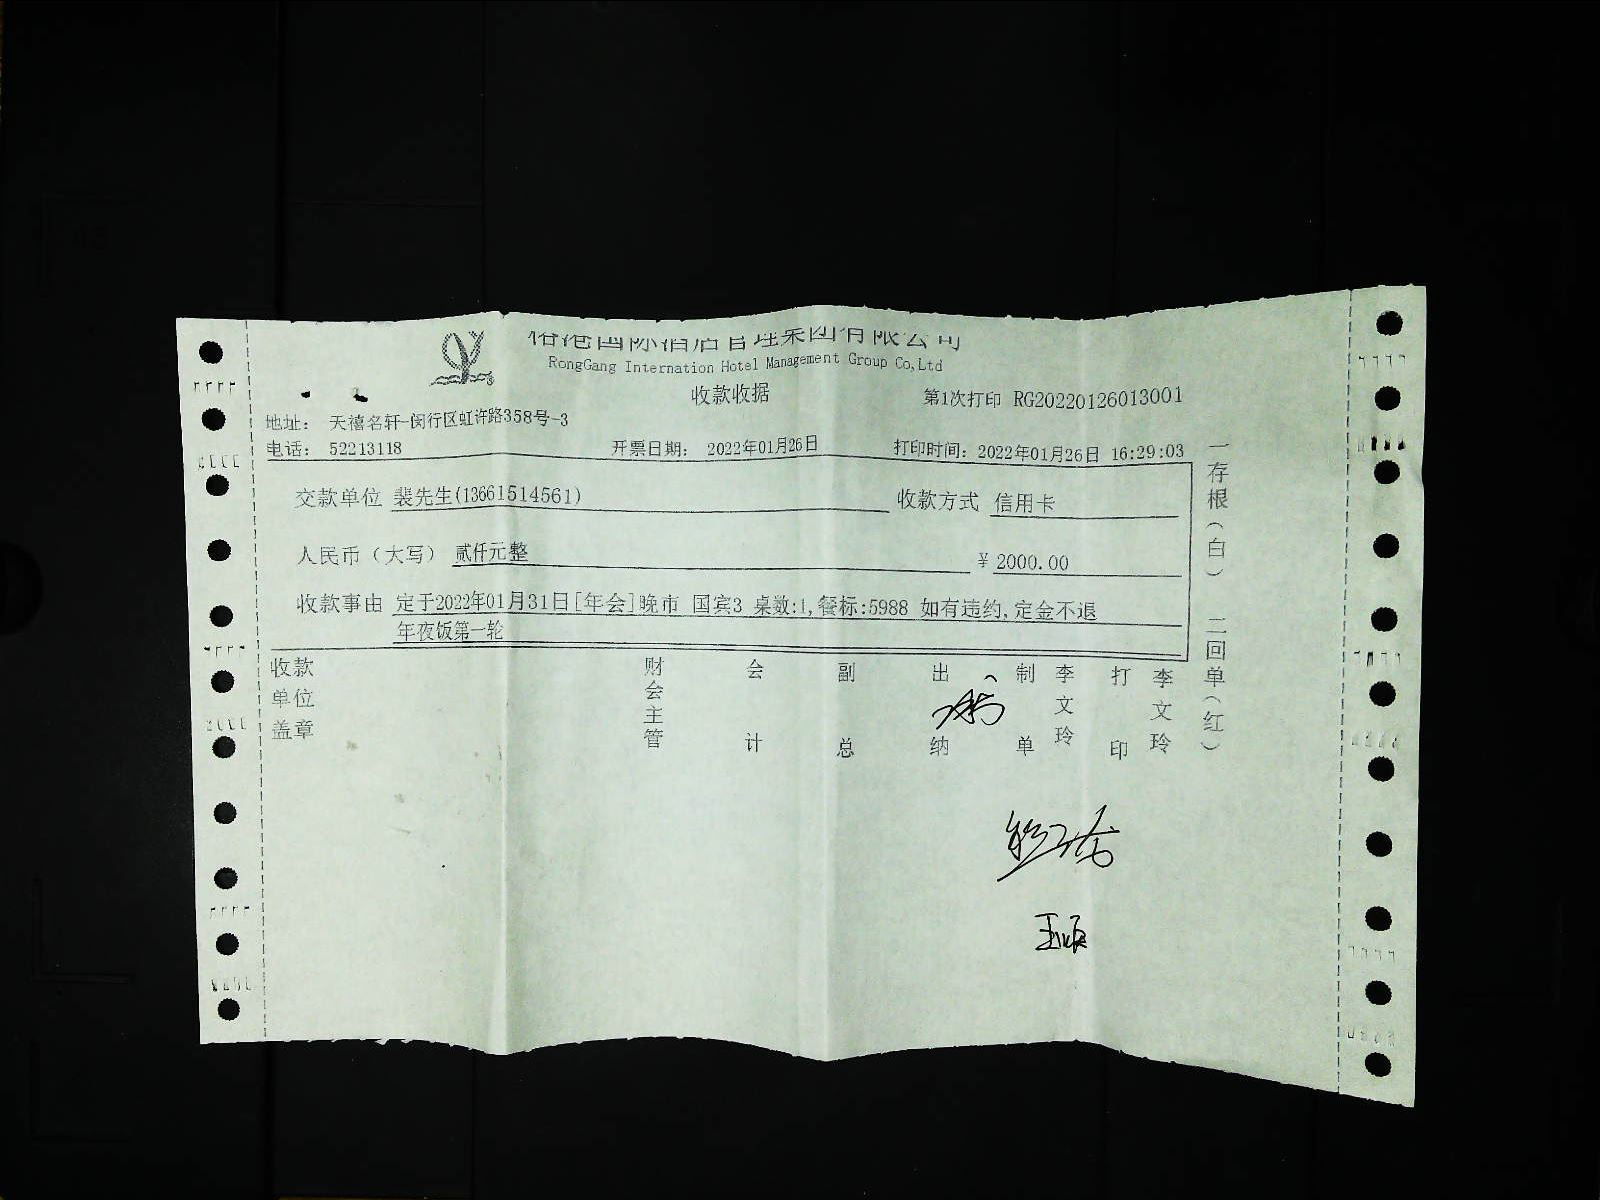 国际酒店管理集团有限公司
RongGang Internation Hotel Management Group Co,Ltd
收款收据
第1次打印 RG20220126013001
地址： 天禧名轩-闵行区虹许路358号-3
电话： 52213118 开票日期： 2022年01月26日 打印时间：2022年01月26日 16:29:03
交款单位 裴先生(13661514561) 收款方式 信用卡
人民币（大写） 贰仟元整 ￥2000.00
收款事由 定于2022年01月31日[年会]晚市 国宾3 桌数:1,餐标:5988 如有违约,定金不退
年夜饭第一轮
收款单位盖章 财会主管 会计 副总 出纳 制单 李文玲 打印 李文玲
一存根（白） 二回单（红）